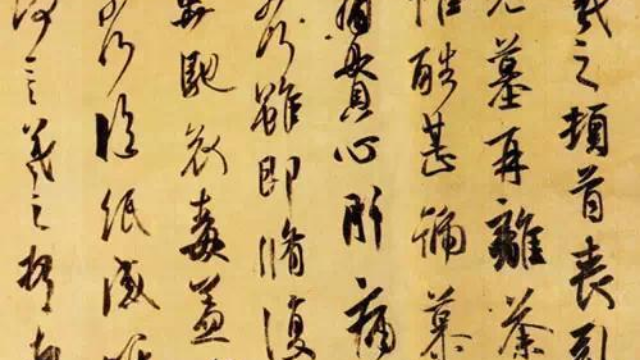 羲之頓首喪亂
先墓再離荼
惟酷甚號慕
痛貫心肝痛
何雖即脩復
奔馳哀毒益
何臨紙感哽
何言羲之頓首